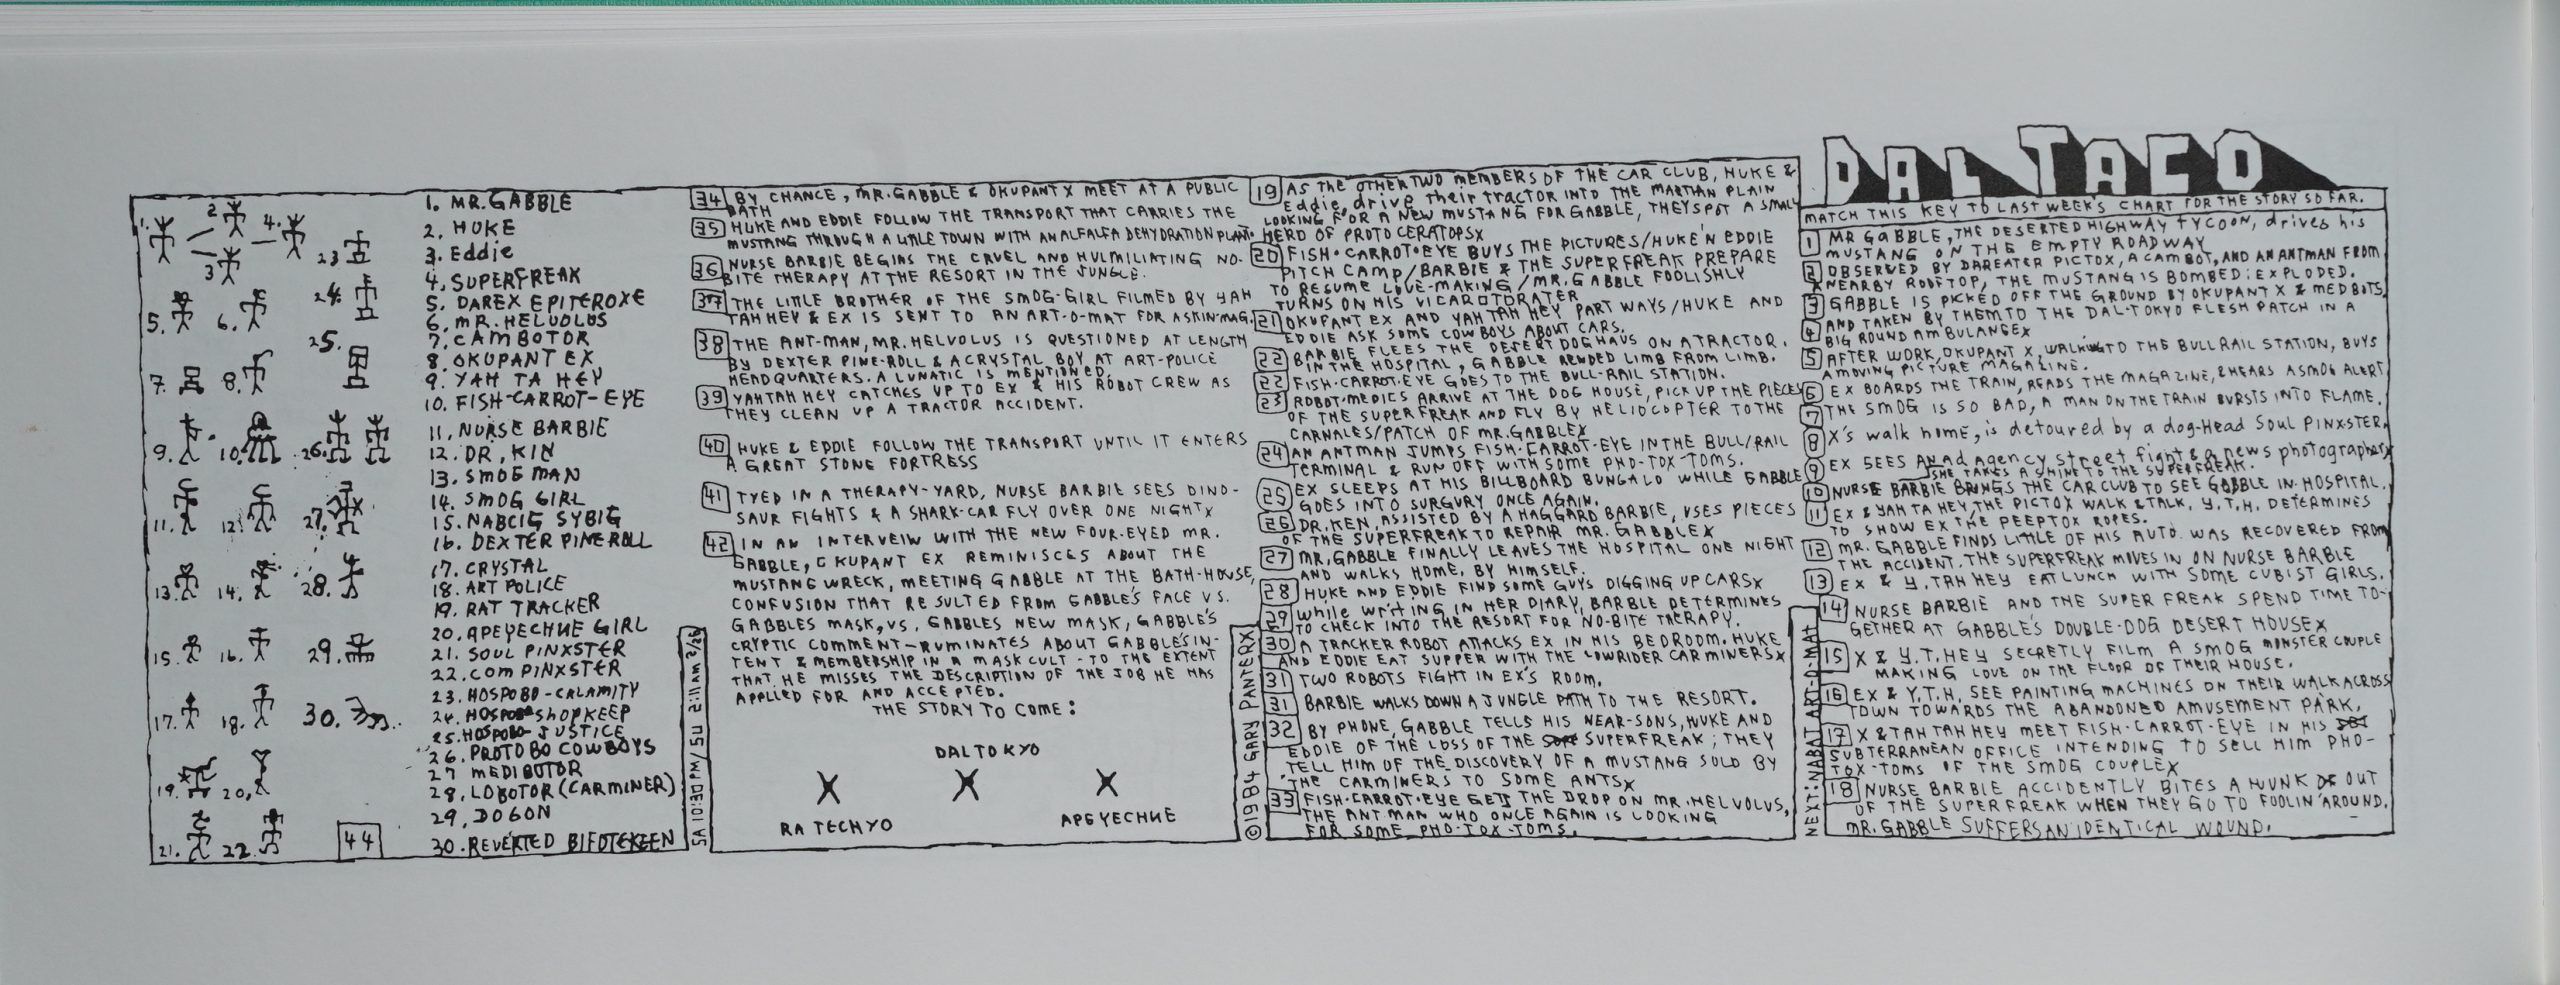 DAL TACO
MATCH THIS KEY TO LAST WEEK'S CHART FOR THE STORY SO FAR.
1 MR GABBLE, THE DESERTED HIGHWAY TYCOON, drives his
MUSTANG ON THE EMPTY ROADWAY
2 OBSERVED BY DAREATER PICTOX, A CAMBOT, AND AN ANTMAN FROM
NEARBY ROOFTOP, THE MUSTANG IS BOMBED: EXPLODED.
3 GABBLE IS PICKED OFF THE GROUND BY OKUPANT X & MEDBOTS,
4 AND TAKEN BY THEM TO THE DAL-TOKYO FLESH PATCH IN A
BIG ROUND AMBULANCEX
5 AFTER WORK, OKUPANT X, WALKING TO THE BULL RAIL STATION, BUYS
A MOVING PICTURE MAGAZINE.
6 EX BOARDS THE TRAIN, READS THE MAGAZINE, & HEARS A SMOG ALERT
7 THE SMOG IS SO BAD, A MAN ON THE TRAIN BURSTS INTO FLAME.
8 X's walk home, is detoured by a dog-Head Soul PINXSTER.
9 EX SEES AN Ad Agency street fight & a news photographerx
SHE TAKES A SHINE TO THE SUPERFREAK.
10 NURSE BARBIE BRINGS THE CAR CLUB TO SEE GABBLE IN HOSPITAL.
11 EX & YAH TA HEY, THE PICTOX WALK & TALK. Y.T.H. DETERMINES
TO SHOW EX THE PEEPTOX ROPES.
12 MR. GABBLE FINDS LITTLE OF HIS AUTO WAS RECOVERED FROM
THE ACCIDENT. THE SUPERFREAK MOVES IN ON NURSE BARBIE
13 EX & Y. TAH HEY EAT LUNCH WITH SOME CUBIST GIRLS.
14 NURSE BARBIE AND THE SUPER FREAK SPEND TIME TO-
GETHER AT GABBLE'S DOUBLE-DOG DESERT HOUSEX
15 X & Y.T. HEY SECRETLY FILM A SMOG MONSTER COUPLE
MAKING LOVE ON THE FLOOR OF THEIR HOUSE.
16 EX & Y.T.H. SEE PAINTING MACHINES ON THEIR WALK ACROSS
TOWN TOWARDS THE ABANDONED AMUSEMENT PARK.
17 X & TAH TAH HEY MEET FISH-CARROT-EYE IN HIS
SUBTERRANEAN OFFICE INTENDING TO SELL HIM PHO-
TOX-TOMS OF THE SMOG COUPLEX
18 NURSE BARBIE ACCIDENTLY BITES A HUNK OUT
OF THE SUPERFREAK WHEN THEY GO TO FOOLIN' AROUND.
MR. GABBLE SUFFERS AN IDENTICAL WOUND.
NEXT: NABAT ART-O-MAT
19 AS THE OTHER TWO MEMBERS OF THE CAR CLUB, HUKE &
Eddie, drive their TRACTOR INTO THE MARTIAN PLAIN
LOOKING FOR A NEW MUSTANG FOR GABBLE, THEY SPOT A SMALL
HERD OF PROTOCERATOPSX
20 FISH-CARROT-EYE BUYS THE PICTURES/HUKE'N EDDIE
PITCH CAMP/BARBIE & THE SUPERFREAK PREPARE
TO RESUME LOVE-MAKING/MR. GABBLE FOOLISHLY
TURNS ON HIS VICAROTORATER
21 OKUPANT EX AND YAH TAH HEY PART WAYS/HUKE AND
EDDIE ASK SOME COWBOYS ABOUT CARS.
22 BARBIE FLEES THE DESERT DOGHAUS ON A TRACTOR.
IN THE HOSPITAL, GABBLE RENDED LIMB FROM LIMB.
22 FISH-CARROT-EYE GOES TO THE BULL-RAIL STATION.
23 ROBOT-MEDICS ARRIVE AT THE DOG HOUSE, PICK UP THE PIECES
OF THE SUPERFREAK AND FLY BY HELIOCOPTER TO THE
CARNALES/PATCH OF MR. GABBLEX
24 AN ANTMAN JUMPS FISH-CARROT-EYE IN THE BULL/RAIL
TERMINAL & RUN OFF WITH SOME PHO-TOX-TOMS.
25 EX SLEEPS AT HIS BILLBOARD BUNGALO WHILE GABBLE
GOES INTO SURGURY ONCE AGAIN.
26 DR. KEN, ASSISTED BY A HAGGARD BARBIE, USES PIECES
OF THE SUPERFREAK TO REPAIR MR. GABBLEX
27 MR. GABBLE FINALLY LEAVES THE HOSPITAL ONE NIGHT
AND WALKS HOME, BY HIMSELF.
28 HUKE AND EDDIE FIND SOME GUYS DIGGING UP CARSX
29 While WRITING IN HER DIARY, BARBIE DETERMINES
TO CHECK INTO THE RESORT FOR NO-BITE THERAPY.
30 A TRACKER ROBOT ATTACKS EX IN HIS BEDROOM. HUKE
AND EDDIE EAT SUPPER WITH THE LOWRIDER CARMINERSX
31 TWO ROBOTS FIGHT IN EX'S ROOM.
31 BARBIE WALKS DOWN A JUNGLE PATH TO THE RESORT.
32 BY PHONE, GABBLE TELLS HIS NEAR-SONS, HUKE AND
EDDIE OF THE LOSS OF THE SUPERFREAK; THEY
TELL HIM OF THE DISCOVERY OF A MUSTANG SOLD BY
THE CARMINERS TO SOME ANTSX
33 FISH-CARROT-EYE GETS THE DROP ON MR. HELVOLUS,
THE ANT MAN WHO ONCE AGAIN IS LOOKING
FOR SOME PHO-TOX-TOMS.
©1984 GARY PANTERX
34 BY CHANCE, MR. GABBLE & OKUPANT X MEET AT A PUBLIC
BATH
35 HUKE AND EDDIE FOLLOW THE TRANSPORT THAT CARRIES THE
MUSTANG THROUGH A LITTLE TOWN WITH AN ALFALFA DEHYDRATION PLANT.
36 NURSE BARBIE BEGINS THE CRUEL AND HULMILIATING NO-
BITE THERAPY AT THE RESORT IN THE JUNGLE.
37 THE LITTLE BROTHER OF THE SMOG-GIRL FILMED BY YAH
TAH HEY & EX IS SENT TO AN ART-O-MAT FOR A SKIN-MAG.
38 THE ANT-MAN, MR. HELVOLUS IS QUESTIONED AT LENGTH
BY DEXTER PINE-ROLL & A CRYSTAL BOY AT ART-POLICE
HEADQUARTERS. A LUNATIC IS MENTIONED.
39 YAHTAH HEY CATCHES UP TO EX & HIS ROBOT CREW AS
THEY CLEAN UP A TRACTOR ACCIDENT.
40 HUKE & EDDIE FOLLOW THE TRANSPORT UNTIL IT ENTERS
A GREAT STONE FORTRESS
41 TYED IN A THERAPY-YARD, NURSE BARBIE SEES DINO-
SAUR FIGHTS & A SHARK-CAR FLY OVER ONE NIGHTX
42 IN AN INTERVEIW WITH THE NEW FOUR-EYED MR.
GABBLE, OKUPANT EX REMINISCES ABOUT THE
MUSTANG WRECK, MEETING GABBLE AT THE BATH-HOUSE,
CONFUSION THAT RESULTED FROM GABBLE'S FACE VS.
GABBLES MASK, VS. GABBLES NEW MASK, GABBLE'S
CRYPTIC COMMENT-RUMINATES ABOUT GABBLE'S IN-
TENT & MEMBERSHIP IN A MASK CULT - TO THE EXTENT
THAT HE MISSES THE DESCRIPTION OF THE JOB HE HAS
APPLIED FOR AND ACCEPTED.
THE STORY TO COME:
DAL TOKYO
X X X
RATECHYO
APEYECHUE
SA 10:30 PM / SU 2:11 AM 2/26
1. MR. GABBLE
2. HUKE
3. Eddie
4. SUPERFREAK
5. DAREX EPITEROXE
6. MR. HELVOLUS
7. CAMBOTOR
8. OKUPANT EX
9. YAH TA HEY
10. FISH-CARROT-EYE
11. NURSE BARBIE
12. DR. KIN
13. SMOG MAN
14. SMOG GIRL
15. NABCIG SYBIG
16. DEXTER PINEROLL
17. CRYSTAL
18. ART POLICE
19. RAT TRACKER
20. APEYECHUE GIRL
21. SOUL PINXSTER
22. COM PINXSTER
23. HOSPOBO-CALAMITY
24. HOSPOBO SHOPKEEP
25. HOSPOBO-JUSTICE
26. PROTOBO COWBOYS
27 MEDIBOTOR
28. LOBOTOR (CARMINER)
29. DOGON
30. REVERTED BIFOTEKEEN
1. 2. 4.
3 23
5. 6. 24.
25.
7. 8.
9. 10. 26.
11. 12. 27.
13. 14. 28.
15. 16. 29.
17. 18. 30.
19. 20.
21. 22. 44